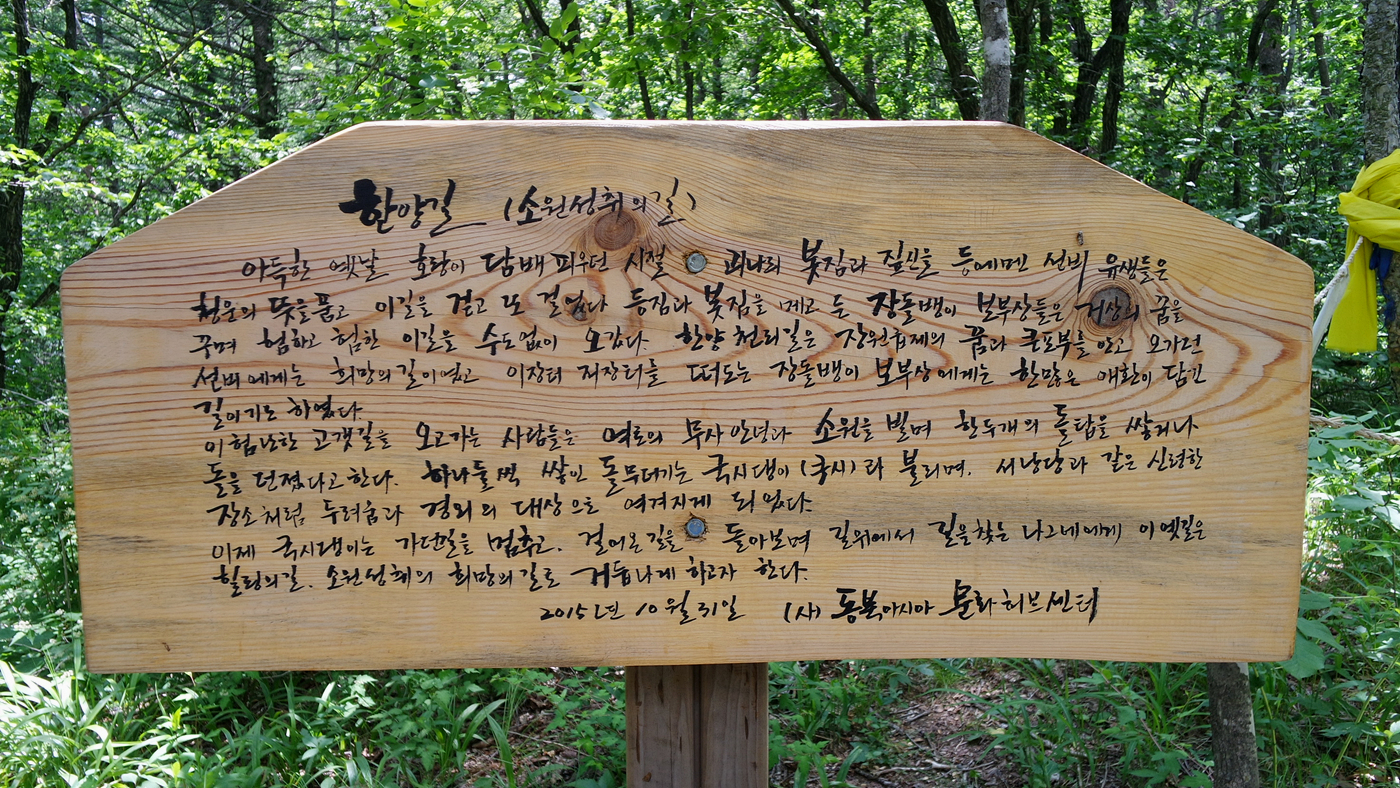 한양길 (소원성취의길)
아득한 옛날 호랑이 담배피우던 시절 괴나리 봇짐과 짚신을 등에메인 선비 유생들은
청운의 뜻을품고 이길을 걷고 또 걸었다 등짐과 봇짐을 메고 둔 장돌뱅이 보부상들은 거상의 꿈을
꾸며 험하고 험한 이길을 수도없이 오갔다 한양 천리길은 장원급제의 꿈과 큰포부를 안고 오가던
선비에게는 희망의길이였고 이장터 저장터를 떠도는 장돌뱅이 보부상에게는 한많은 애환이 담긴
길이기도 하였다.
이험난한 고갯길을 오고가는 사람들은 여로의 무사안녕과 소원을 빌며 한두개의 돌탑을 쌓거나
돌을 던졌다고한다. 하나둘씩 쌓인 돌무더기는 국시댕이(국시)라 불리며. 서낭당과 같은 신령한
장소처럼 두려움과 경외의 대상으로 여겨지게 되었다.
이제 국시댕이는 가던길을 멈추고. 걸어온길을 돌아보며 길위에서 길을찾는 나그네에게 이옛길은
힐링의길. 소원성취의 희망의길로 거듭나게 하고자 한다.
2015년 10월 31일 (사) 동북아시아 문화허브센터